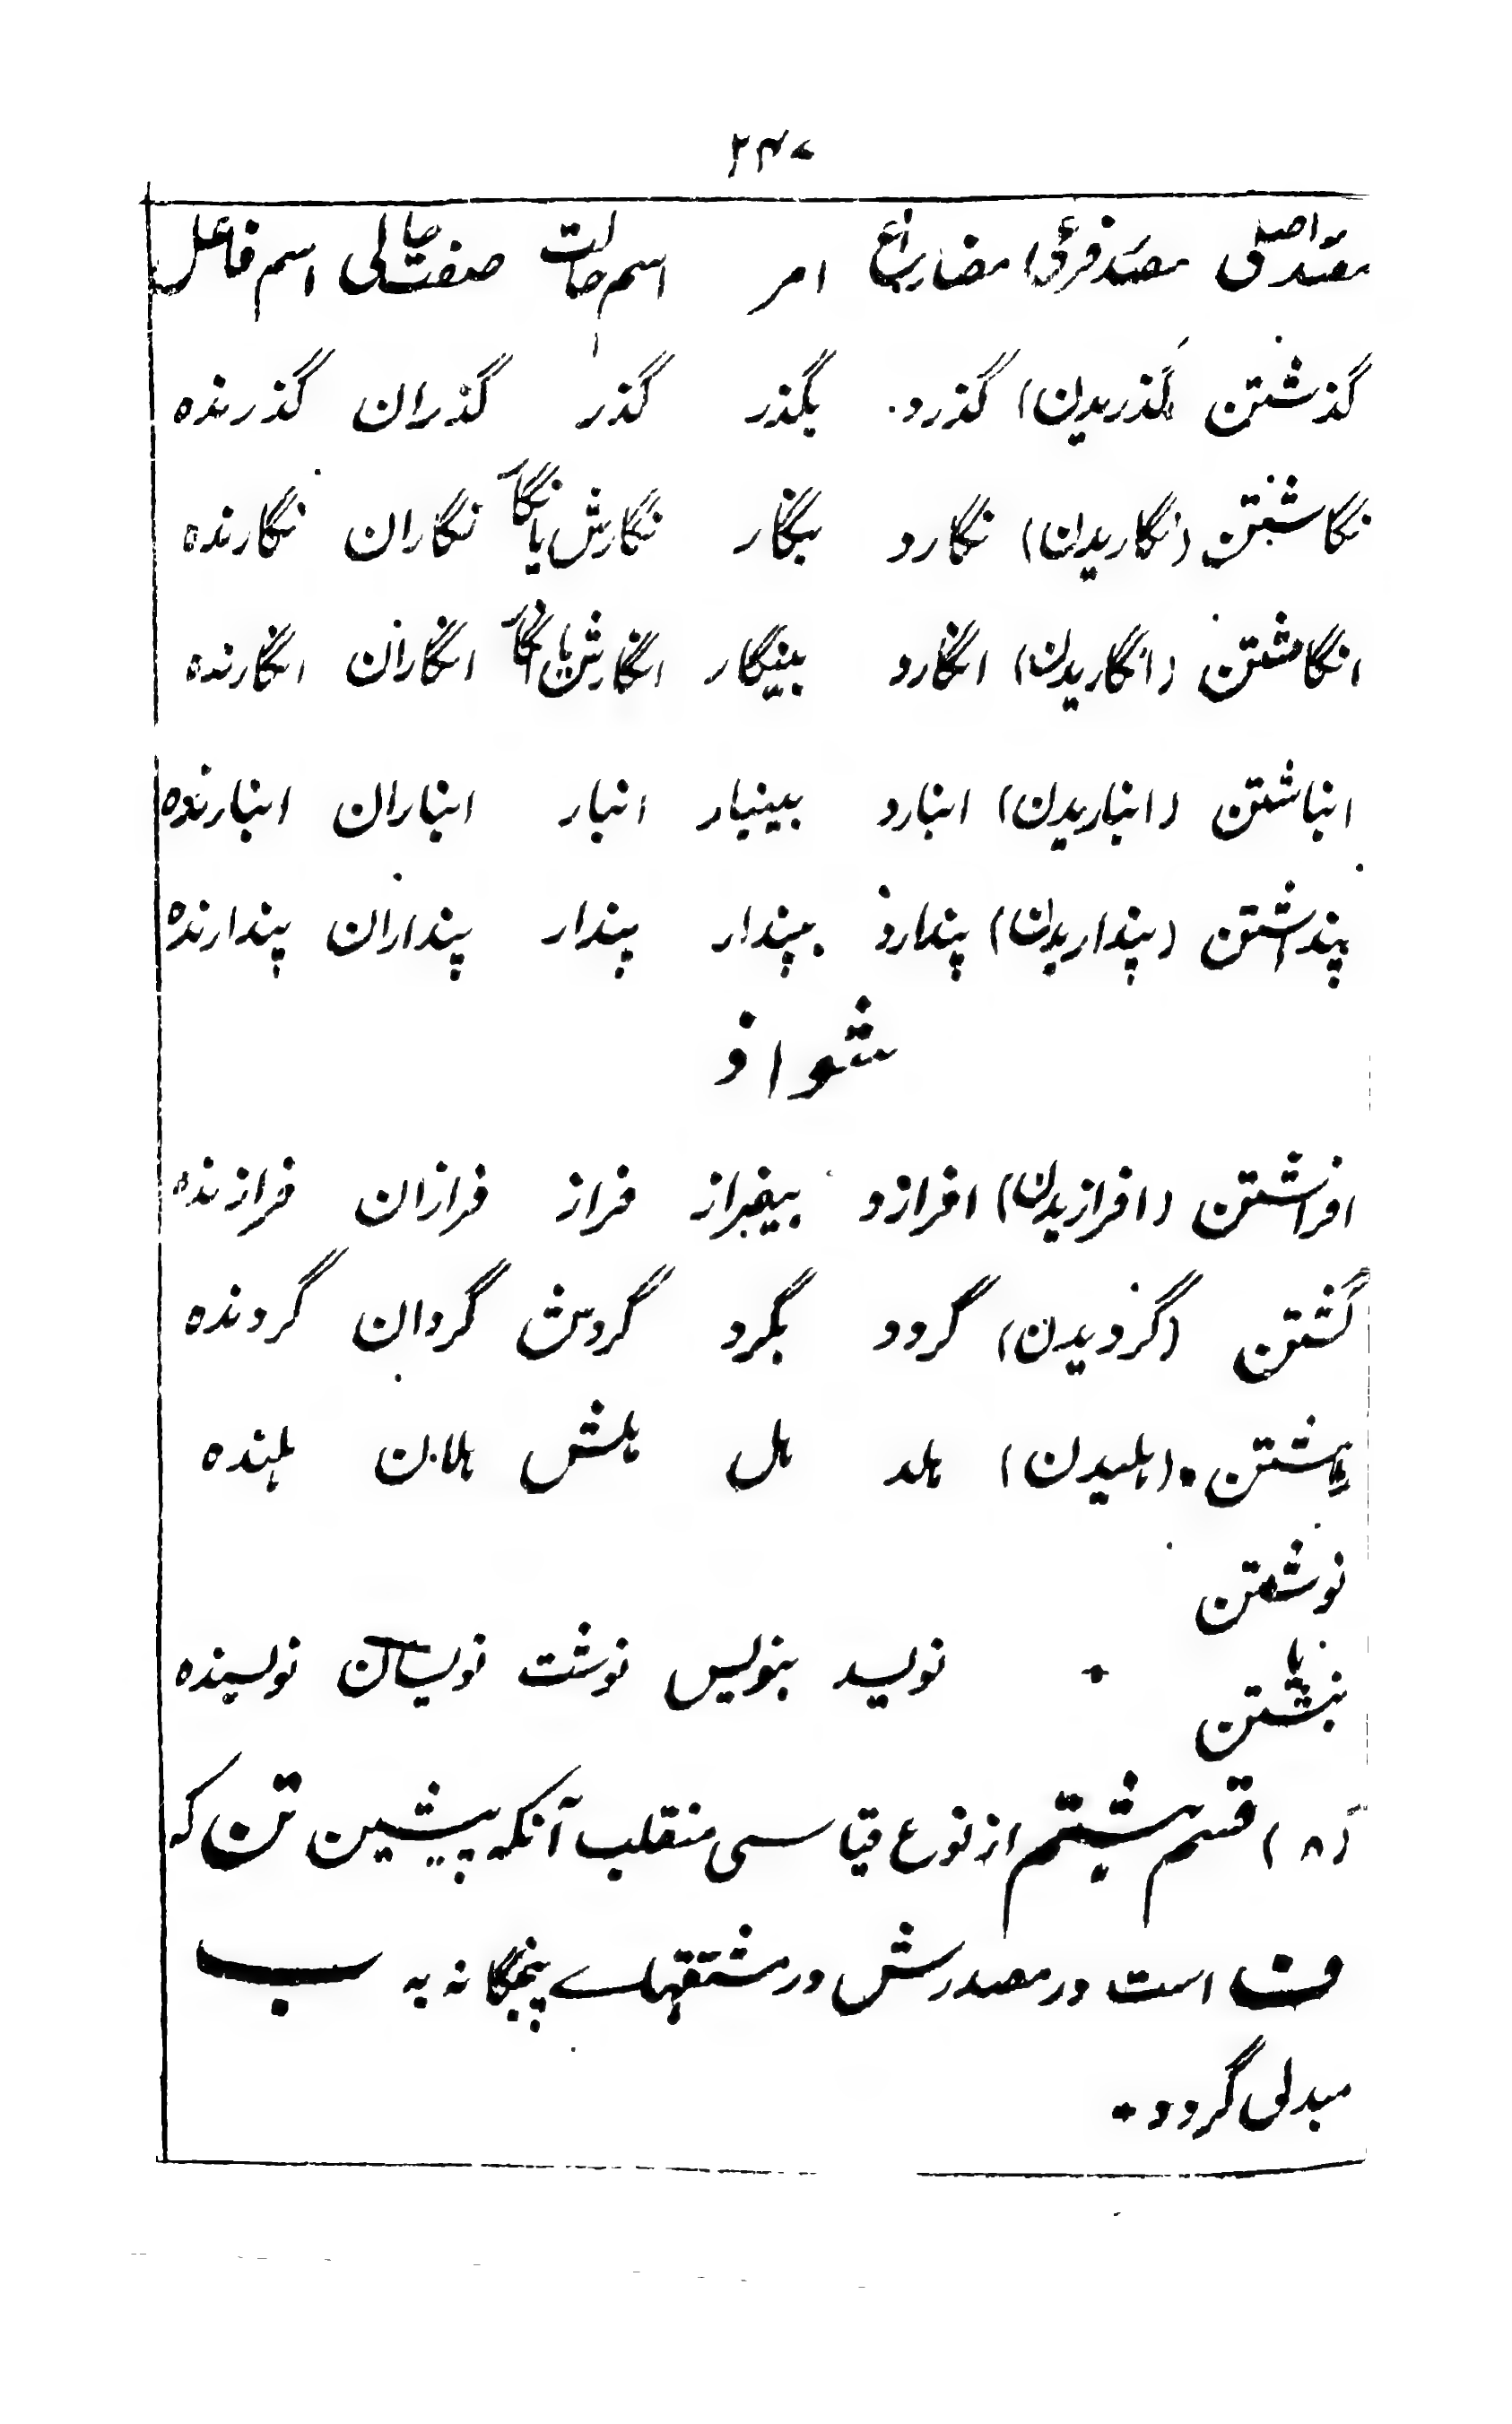 ۲۴۷
مصدر اصلی مصدر فرعی مضارع امر اسم حالت صفت حالی اسم فاعل
گذشتن (گذریدن) گذرد بگذر گذر گذران گذرنده
نگاشتن (نگاریدن) نگارد بنگار نگارش یا نگار نگاران نگارنده
انگاشتن (انگاریدن) انگارد بینگار انگارش یا انگار انگاران انگارنده
انباشتن (انباریدن) انبارد بینبار انبار انباران انبارنده
پنداشتن (پنداریدن) پندارد بپندار پندار پنداران پندارنده
شواذ
افراشتن (افرازیدن) افرازد بیفراز فراز فرازان فرازنده
گشتن (گردیدن) گردد بگرد گردش گردان گردنده
ہشتن (ہلیدن) ہلد ہل ہلش ہلان ہلندہ
نوشتن
یا
نبشتن + نویسد بنویس نوشت نویسان نویسنده
(۸) قسم ہشتم از نوع قیاسی منقلب آنکہ پیشین تن کہ
ف است در مصدرش در مشتقہاے پنجگانہ بہ ب
مبدل گردد -